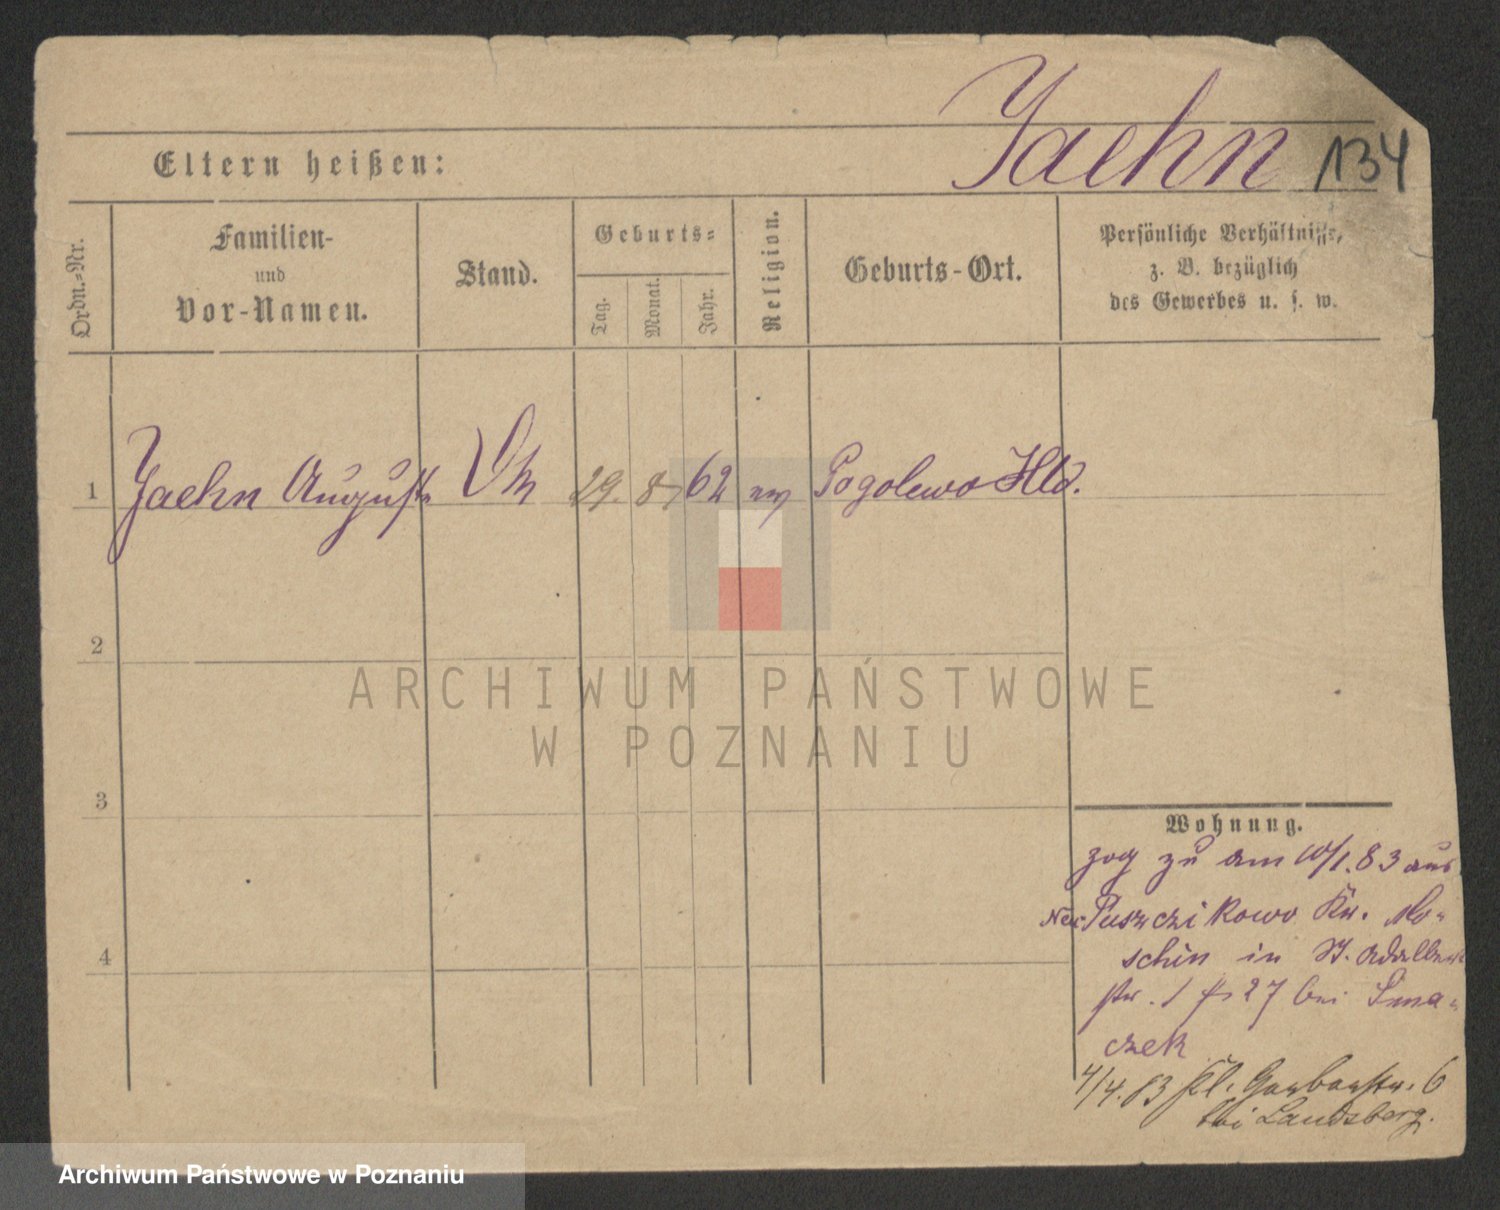 Jaehn 134
Eltern heißen:
Ordn.-Nr.
Familien-
und
Vor-Namen.
Stand.
Geburts-
Tag.
Monat.
Jahr.
Religion.
Geburts-Ort.
Persönliche Verhältnisse,
z. B. bezüglich
des Gewerbes u. s. w.
1 Jaehn Auguste 29. 8 62 ev Pogolewo Hld.
2
3
4
Wohnung.
zog zu am 10/1.83 aus
Puszczikowo Kr. Mo-
schin in St. Adalbert
str. 1 27 bei Sma-
czek
4/4.83 Kl. Gerberstr. 6
bei Landsberg.
ARCHIWUM PAŃSTWOWE
W POZNANIU
Archiwum Państwowe w Poznaniu